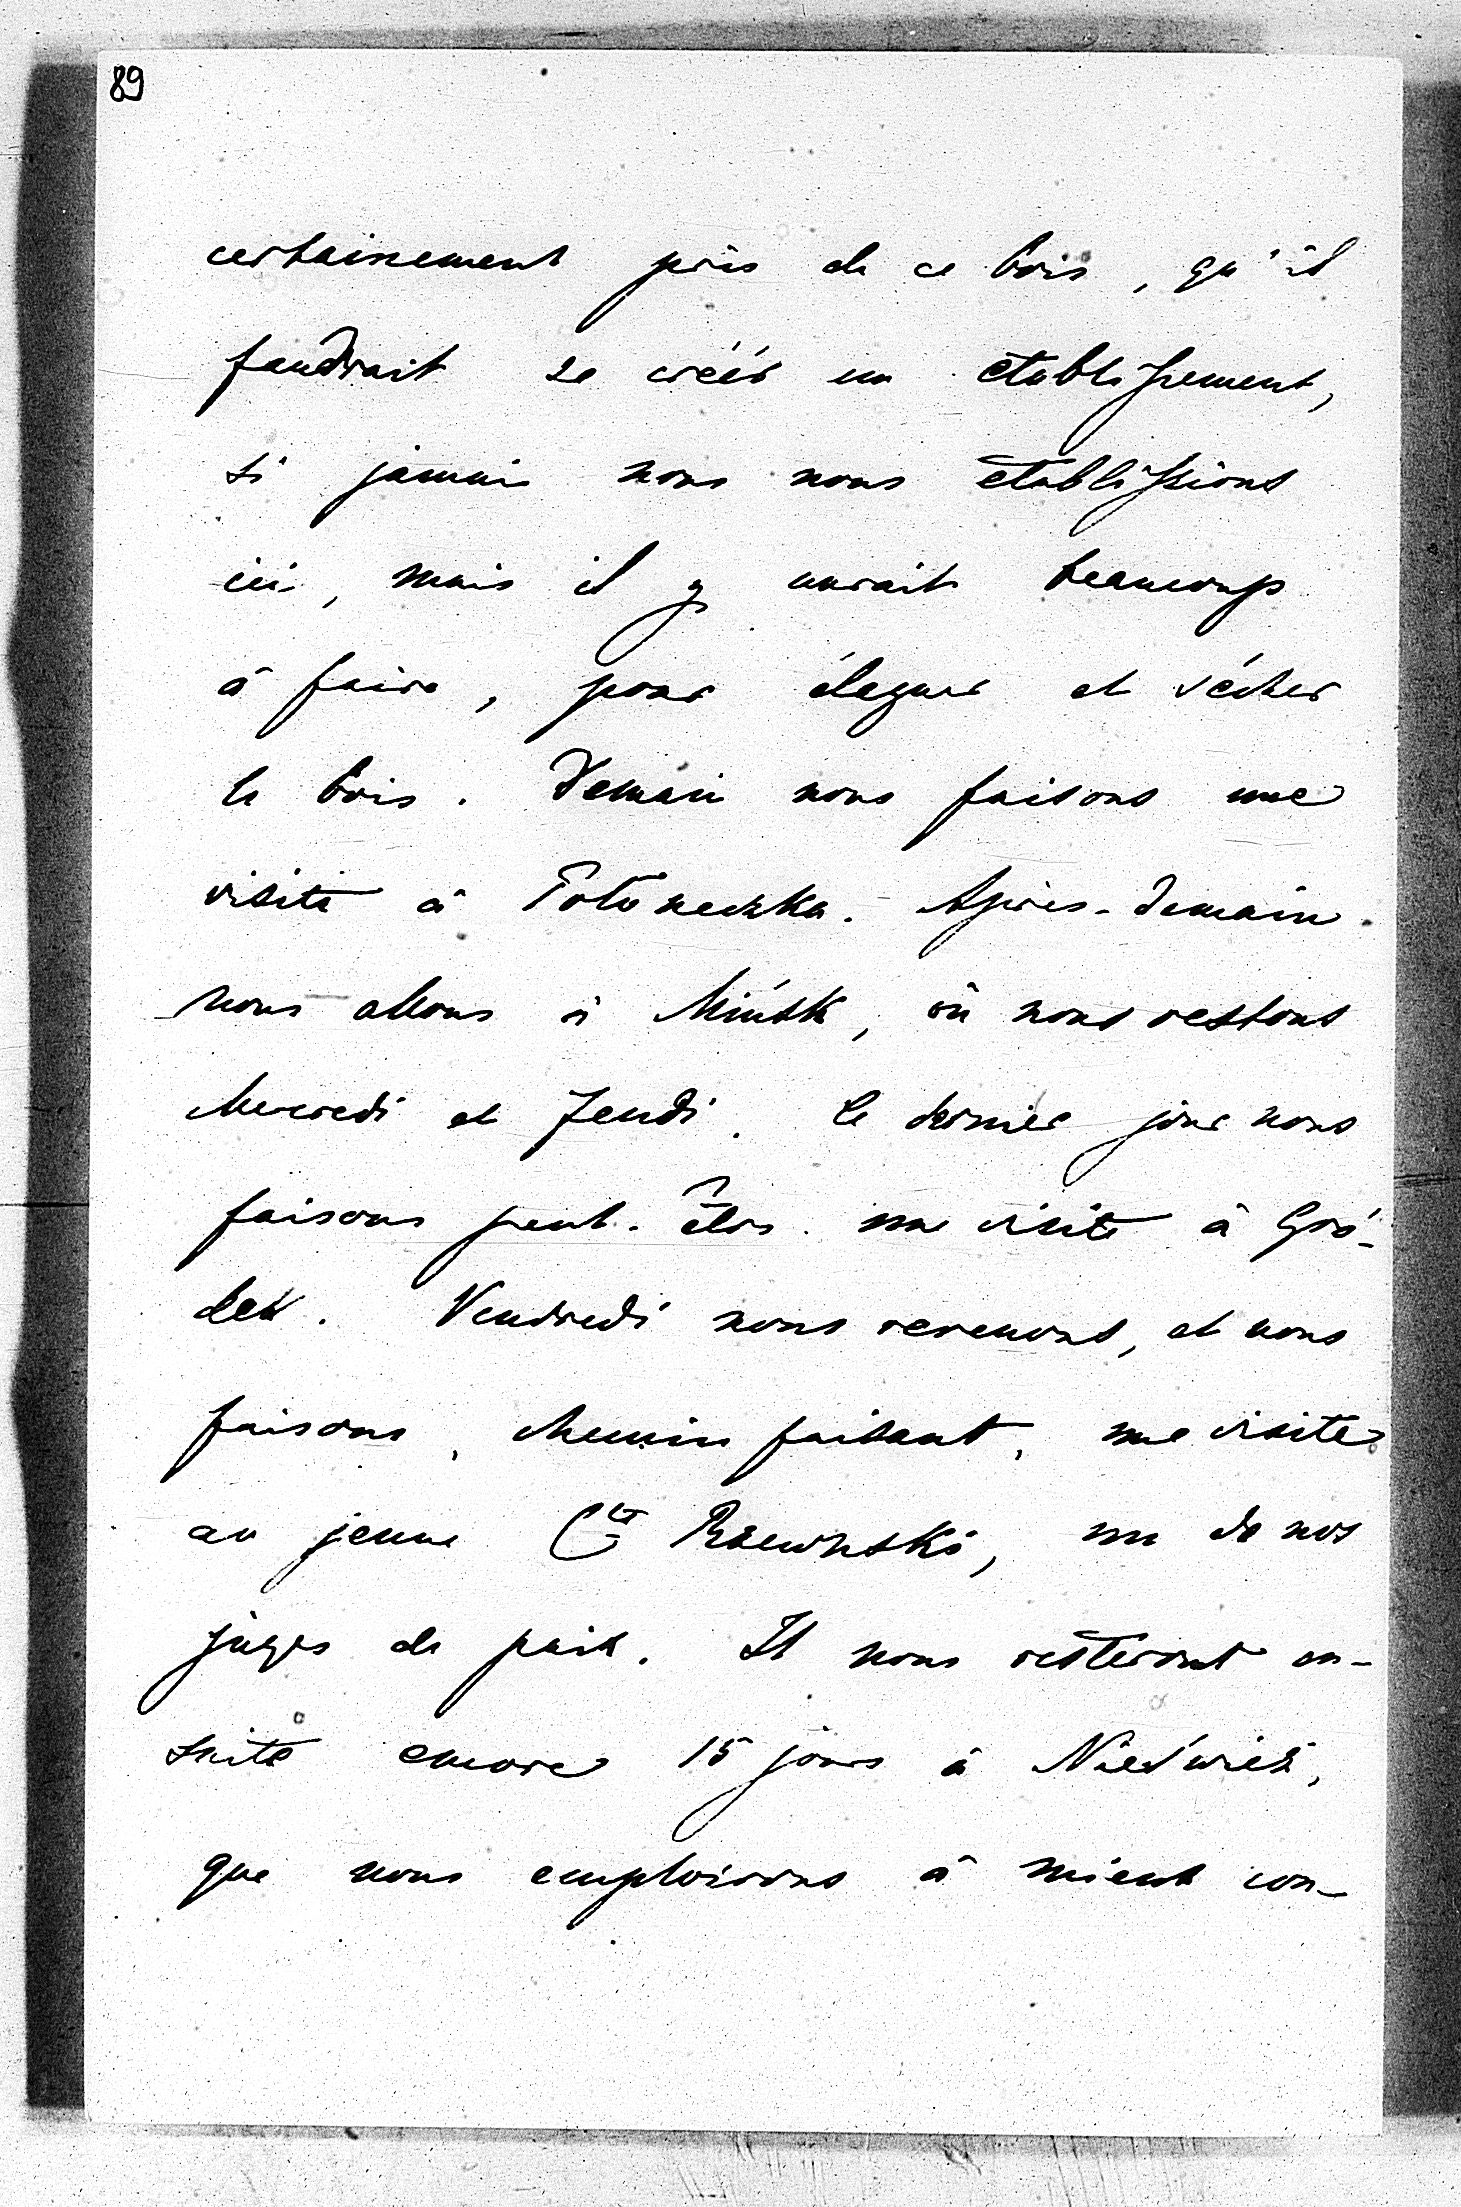 89
certainement près de ce bois, qu'il
faudrait se créér un etablissement,
si jamais nous nous etablissions
ici, mais il y aurait beaucoup
à faire, pour élaguer et sécher
le bois. Demain nous faisons une
visite à Potoneczka. Après-demain
nous allons à Mińsk, où nous restons
Mercredi et Jeudi. Le dernier jour nous
faisons peut-être une visite à Gró-
dek. Vendredi nous revenons, et nous
faisons, chemin faisant, une visite
au jeune Cte Rzewuski, un de nos
juges de paix. Il nous resteront en-
suite encore 15 jours à Nieśwież,
que nous emploirons à mieux con-